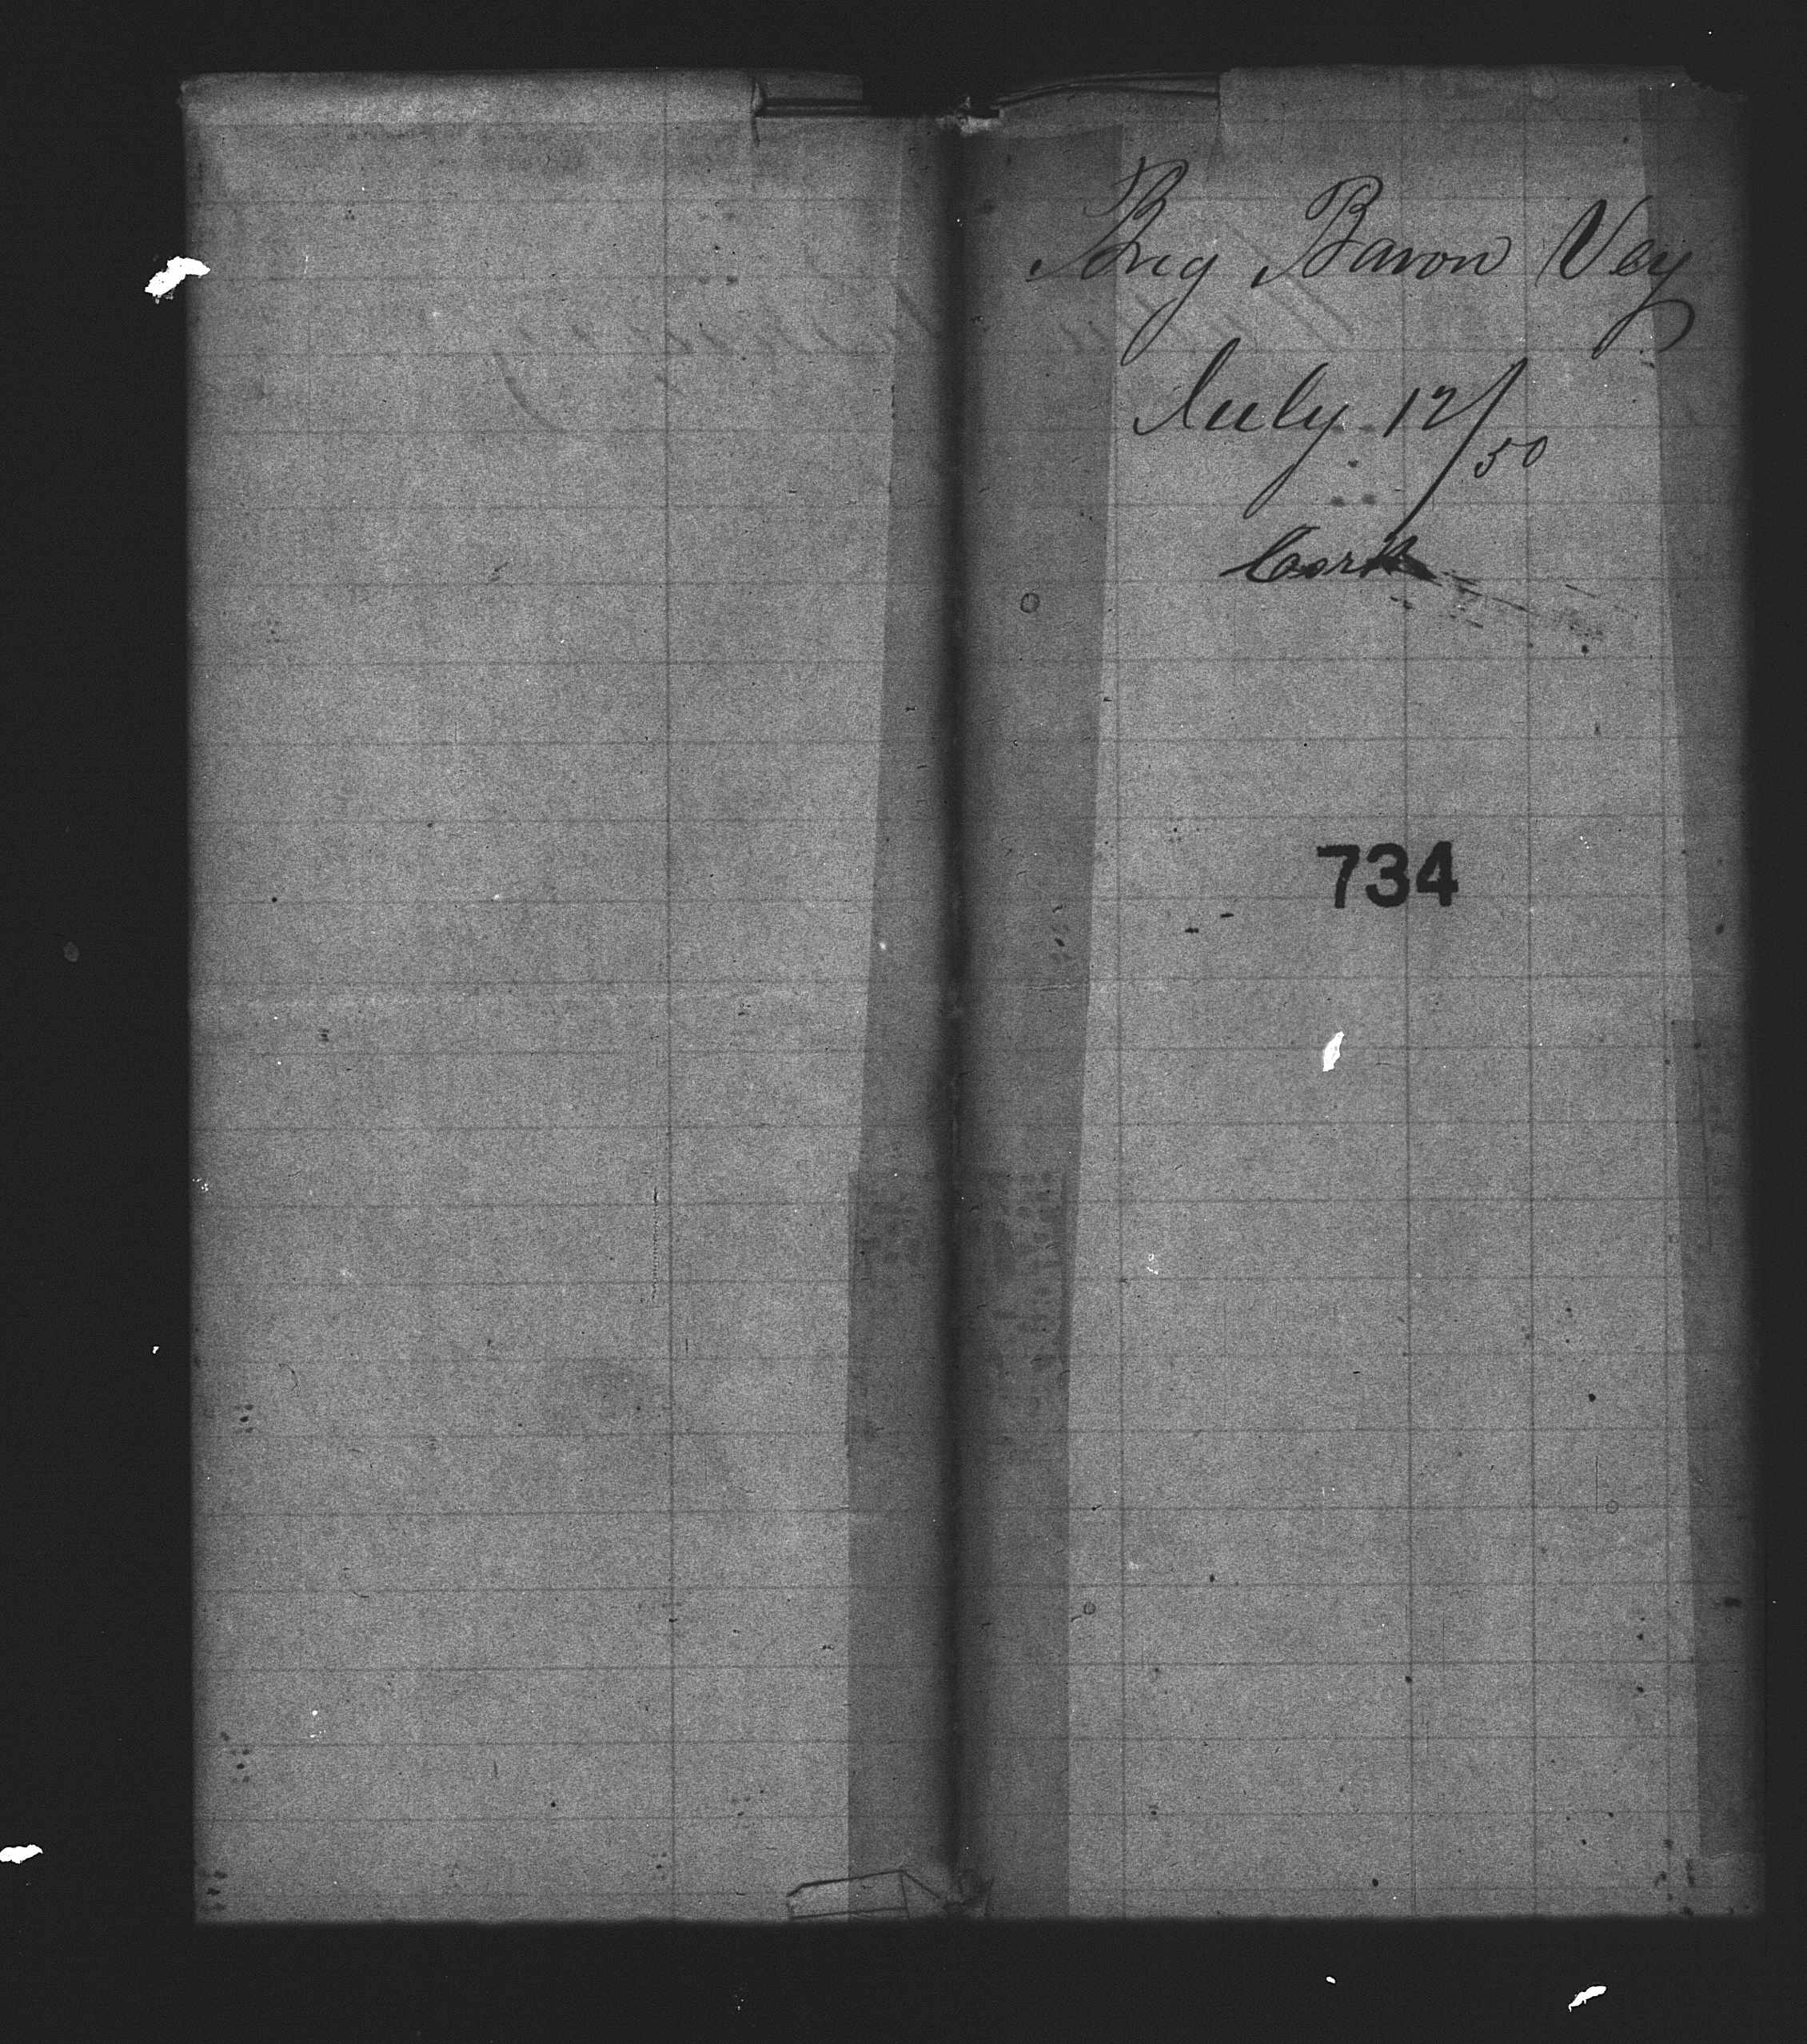 Brig Baron Vey
July 12/50
Cork
734